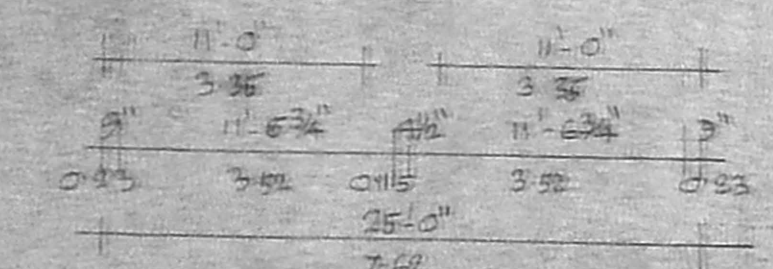 11'-0" 11'-0"
3.35 3.35
9" 11'-6¾" 4½" 11'-6¾" 9"
0.23 3.52 0.115 3.52 0.23
25'-0"
7.62